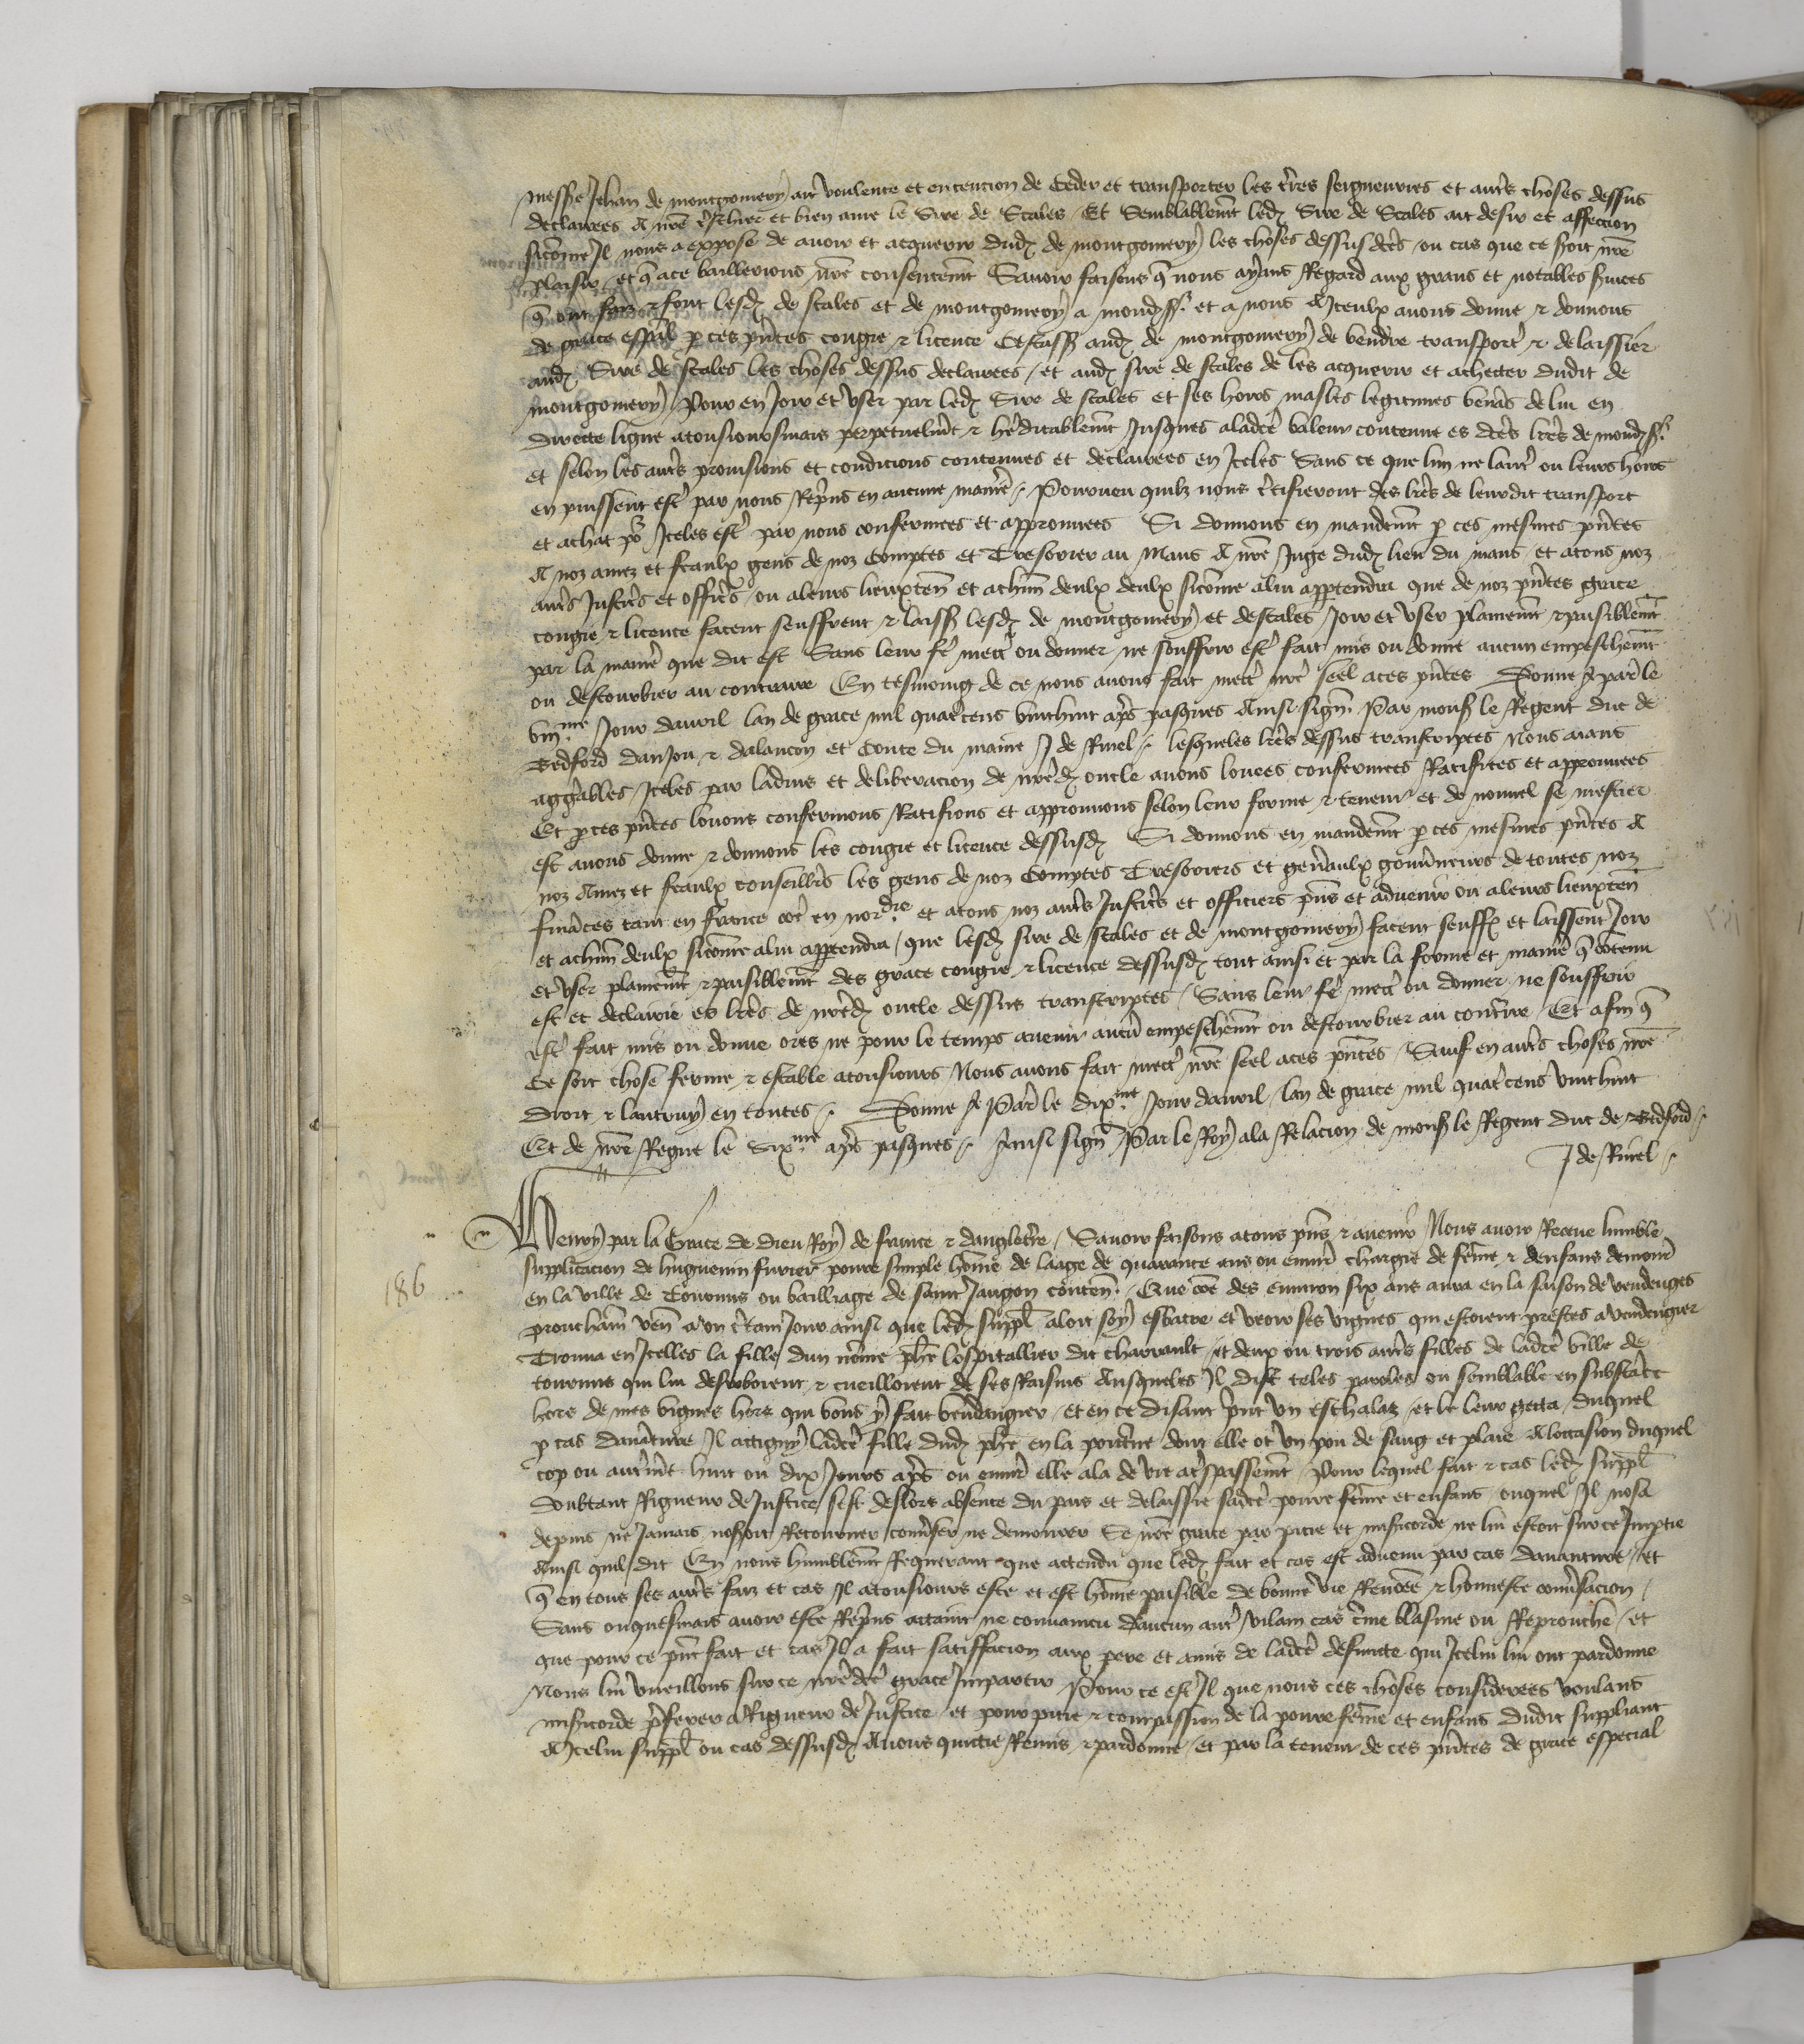 messe Jehan de montgomery ait voulente et entencion de ceder et transporter les tres seigneuries et autrs choses dessus
declairees A nre treschier et bien ame le Sire de Scales / Et semblablemt led Sire de Scales ait desir et affection
sicome Il nous a exposé de avoir et acquerir dud de montgomery les choses dessus dcts / ou cas que ce soit nre
plaisir / et q ace baillerions nre consentemt Savoir faisons q nous ayans Regard aux grans et notables suices
q ont faiz & font lesd de scales et de montgomery a mond sr et a nous A Iceulx avons donne & donnons
de grace esspal p ces pntes congie & licence Cestass aud de montgomery de vendre transportr & delaissier
aud Sire de scales les choses dessus declairees / et aud sire de scales de les acquerir et achecter dudit de
montgomery / Pour en Joir et user par led Sire de scales et ses hoirs masles legitimes venans de lui en
directe ligne atousiours mais perpetuelmt & heditablemt Jusques a ladce valeur contenue es dces lres de mond sr
et selon les autrs provisions et condicions contenues et declairees en Iceles Sans ce que lun ne lautr ou leurs hoirs
en puissent estr par nous Reprins en aucune maniere / Pourveu quilz nous ctifieront des lres de leurdit transport
et achat pr Iceles estr par nous confermees et approuvees Si donnons en mandemt p ces mesmes pntes
A noz amez et feaulx gens de noz Comptes et Tresorier au Mans A nre Juge dud lieu du mans / et atous noz
autrs Justicrs et officrs / ou aleurs lieuxten et achun deulx deulx sicome alui appartendra que de noz pntes grace
congie & licence facent seuffrent & laissent lesd de montgomery et de scales / Joir et user plainemt & paisiblemt
par la manie que dit est Sans leur fe mectr ou donner ne souffrir estr fait mis ou donne aucun empeschemt
ou destourbier au contraire En tesmoing de ce nous avons fait mectr nre seel aces pntes Donne A paris le
viiime Jour davril lan de grace mil quatrcens vinthuit aps pasques Ainsi sign Par mons le Regent duc de
Bedford danjou & dalancon et Conte du maine J de Rinel / lesqueles lres dessus transcriptes Nous aians
aggrables / Iceles par ladvis et deliberacion de nred oncle avons louees confermees Ratifiees et approuvees
Et p ces pntes louons confermons Ratifions et approuvons selon leur forme & teneur et de nouvel se mestier
est avons donne & donnons les congie et licence dessusd Si donnons en mandemt p ces mesmes pntes A
noz Amez et feaulx conseillers les gens de noz Comptes Tresoriers et genaulx gouvneurs de toutes noz
finances tant en france coe en nordie et atous noz autrs Justicrs et officiers pns et advenir ou aleurs lieuxten
et achun deulx sicome alui appartendra / que lesd sire de scales et de montgomery facent seuffr et laissent Joir
et user plainemt & paisiblemt des grace congie & licence dessusd tout ainsi et par la forme et manie q contenu
est et declairie es lres de nred oncle dessus transcriptes / Sans leur fe mectr ou donner ne souffrir
estr fait mis ou donne ores ne pour le temps avenir aucun empeschemt ou destourbier au contraire / Et afin q
Ce soit chose ferme & estable atousiours Nous avons fait mectr nre seel aces pntes / Sauf en autrs choses nre
droit & lautruy en toutes / Donne A Paris le dixme Jour davril lan de grace mil quatrcens vinthuit
Et de nre Regne le Sixme aps pasques / Ainsi sign Par le Roy ala Relacion de mons le Regent duc de Bedford
J de Rinel
186
Henry par la Grace de Dieu Roy de france & dangleterre / Savoir faisons atous pns & avenir Nous avoir Receue humble
supplicacion de huguenin furier povre simple home de laage de quarante ans ou envir chargie de feme & denfans demour
en la ville de Tournus ou bailliage de saint Jangon conten / Que coe des environ six ans aura en la saison de vendenges
prouchain ven a un ctain Jour ainsi que led suppl aloit soy esbatre et veoir ses vignes qui estoient prestes a vendengier
Trouva en Icelles la fille dun nome phe lospitallier dit charrault / et deux ou trois autrs filles de ladce ville de
tournus qui lui desroboient & cueilloient de ses Raisins Ausqueles Il dist teles paroles ou semblable en substace
hors de mes vignes hors qui vous y fait vendengier / et en ce disant print un eschalaz / et le leur getta / duquel
p cas daventure / Il attigny ladce fille dud phe en la poictrine dont elle ot un pou de sang et plaie A loccasion duquel
cop ou autrmt huit ou dix Jours aps ou envir elle ala de vie a trspassemt / Pour lequel fait & cas led suppl
doubtant Rigueur de Justice / sest deslors absente du pais et delaissie sadce povre feme et enfans / ouquel Il nosa
depuis ne Jamais noseroit Retourner conuser ne demourer Se nre grace par pitie et misicorde ne lui estoit sur ce Imptie
Ainsi quil dit En nous humblemt Requerant que attendu que led fait et cas est advenu par cas davanture / et
q en tous ses autrs faiz et cas Il atousiours este et est home paisible de bonne vie Renoee & honneste conusacion /
Sans onquesmais avoir este Reprins attaint ne convaincu daucun autr vilain cas cme blasme ou Reprouche / et
que pour ce pnt fait et cas Il a fait satiffacion aux pere et amis de ladce defuncte qui Icelui lui ont pardonne
Nous lui vueillons sur ce nredce grace Impartir Pour ce est Il que nous ces choses considerees voulans
misicorde pferer a Rigueur de Justice / et pour pitie & compassion de la povre feme et enfans dudit suppliant
A Icelui suppl ou cas dessusd Avons quictie Remis & pardonne / et par la teneur de ces pntes de grace especial